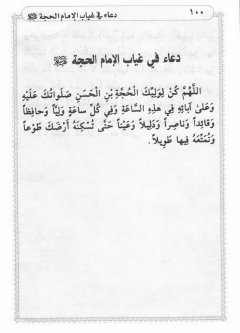 ١٠٠
دعاء في غياب الإمام الحجة ﷺ
دعاء في غياب الإمام الحجة
اللَّهُمَّ كُنْ لِوَلِيِّكَ الْحُجَّةِ بْنِ الْحَسَنِ صَلَوَاتُكَ عَلَيْهِ
وَعَلَىٰ آبَائِهِ فِي هٰذِهِ السَّاعَةِ وَفِي كُلِّ سَاعَةٍ وَلِيّاً وَحَافِظاً
وَقَائِداً وَنَاصِراً وَدَلِيلاً وَعَيْناً حَتَّىٰ تُسْكِنَهُ أَرْضَكَ طَوْعاً
وَتُمَتِّعَهُ فِيهَا طَوِيلاً.